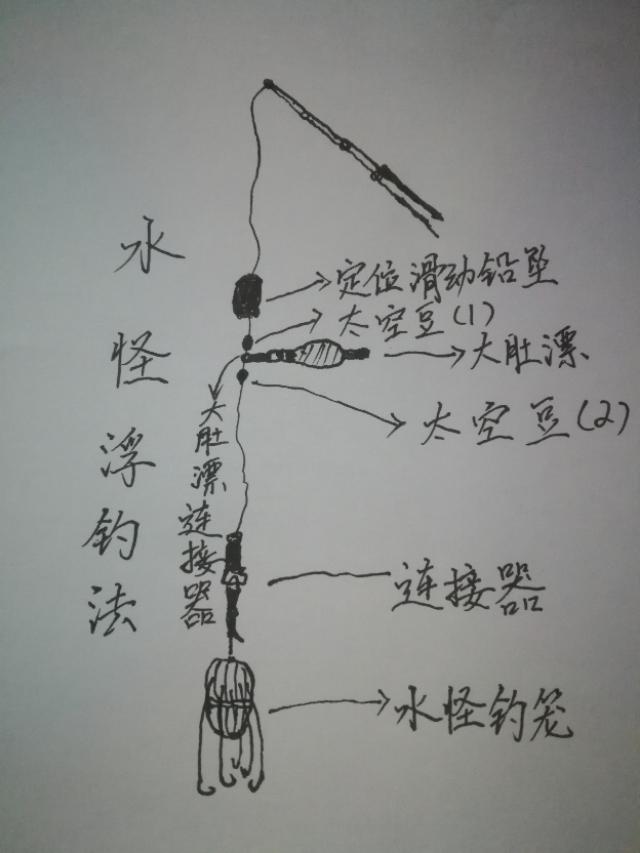 水怪浮钓法
定位滑动铅坠
太空豆(1)
大肚漂
太空豆(2)
大肚漂连接器
连接器
水怪钓笼